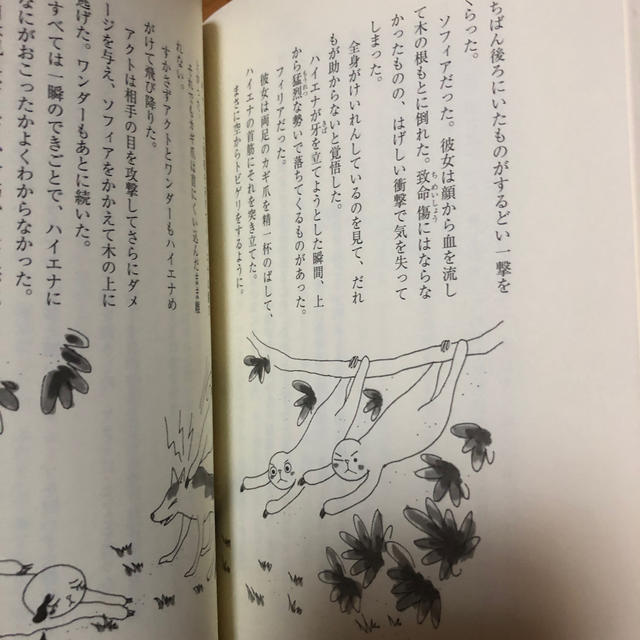 ちばん後ろにいたものがするどい一撃を
くらった。
ソフィアだった。彼女は顔から血を流し
て木の根もとに倒れた。致命傷にはならな
ちめいしょう
かったものの、はげしい衝撃で気を失って
しまった。
全身がけいれんしているのを見て、だれ
もが助からないと覚悟した。
ハイエナが牙を立てようとした瞬間、上
きば
から猛烈な勢いで落ちてくるものがあった。
もうれつ
フィリアだった。
彼女は両足のカギ爪を精一杯のばして、
ハイエナの首筋にそれを突き立てた。
まさに空からトビゲリをするように。
れない。
すかさずアクトとワンダーもハイエナめ
がけて飛び降りた。
アクトは相手の目を攻撃してさらにダメ
ージを与え、ソフィアをかかえて木の上に
逃げた。ワンダーもあとに続いた。
すべては一瞬のできごとで、ハイエナに
なにがおこったかよくわからなかった。